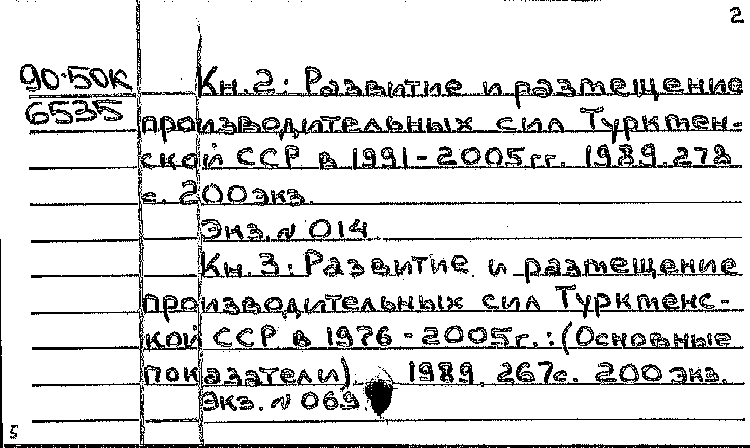 2
90-50К
6535
Кн. 2: Развитие и размещение
производительных сил Туркмен-
ской ССР в 1991-2005гг. 1989. 272
с. 200экз.
Экз. № 014
Кн. 3: Развитие и размещение
производительных сил Туркменс-
кой ССР в 1976-2005г.: (Основные
показатели). 1989. 267с. 200 экз.
Экз. № 069
5